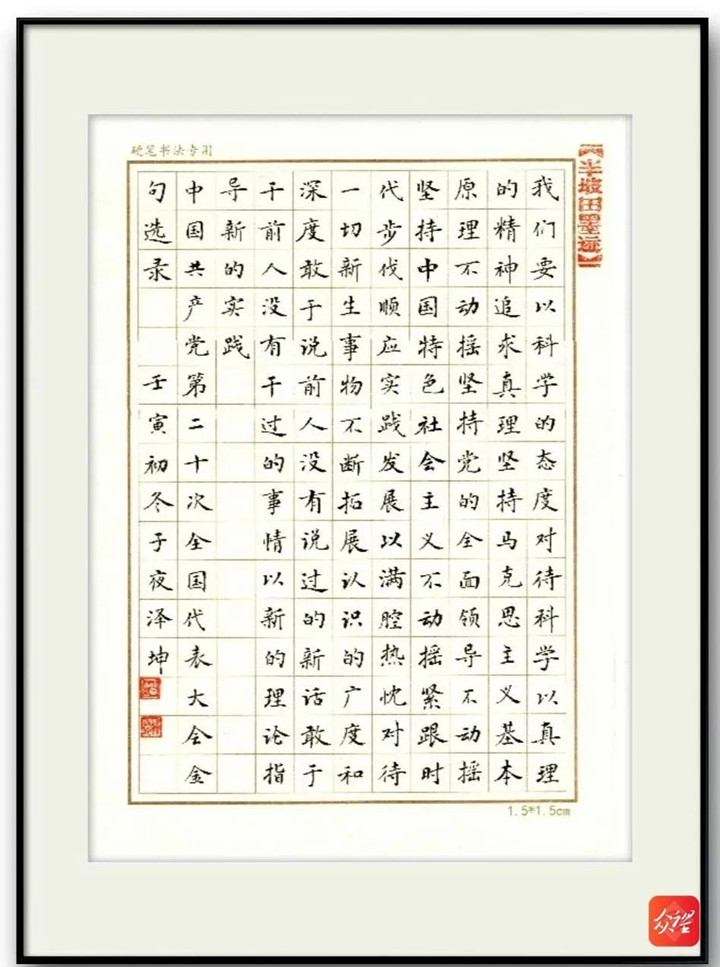 硬笔书法专用
【半坡田墨迹】
我们要以科学的态度对待科学以真理
的精神追求真理坚持马克思主义基本
原理不动摇坚持党的全面领导不动摇
坚持中国特色社会主义不动摇紧跟时
代步伐顺应实践发展以满腔热忱对待
一切新生事物不断拓展认识的广度和
深度敢于说前人没有说过的新话敢于
干前人没有干过的事情以新的理论指
导新的实践
中国共产党第二十次全国代表大会金
句选录 壬寅初冬子夜泽坤
1.5*1.5cm
众望